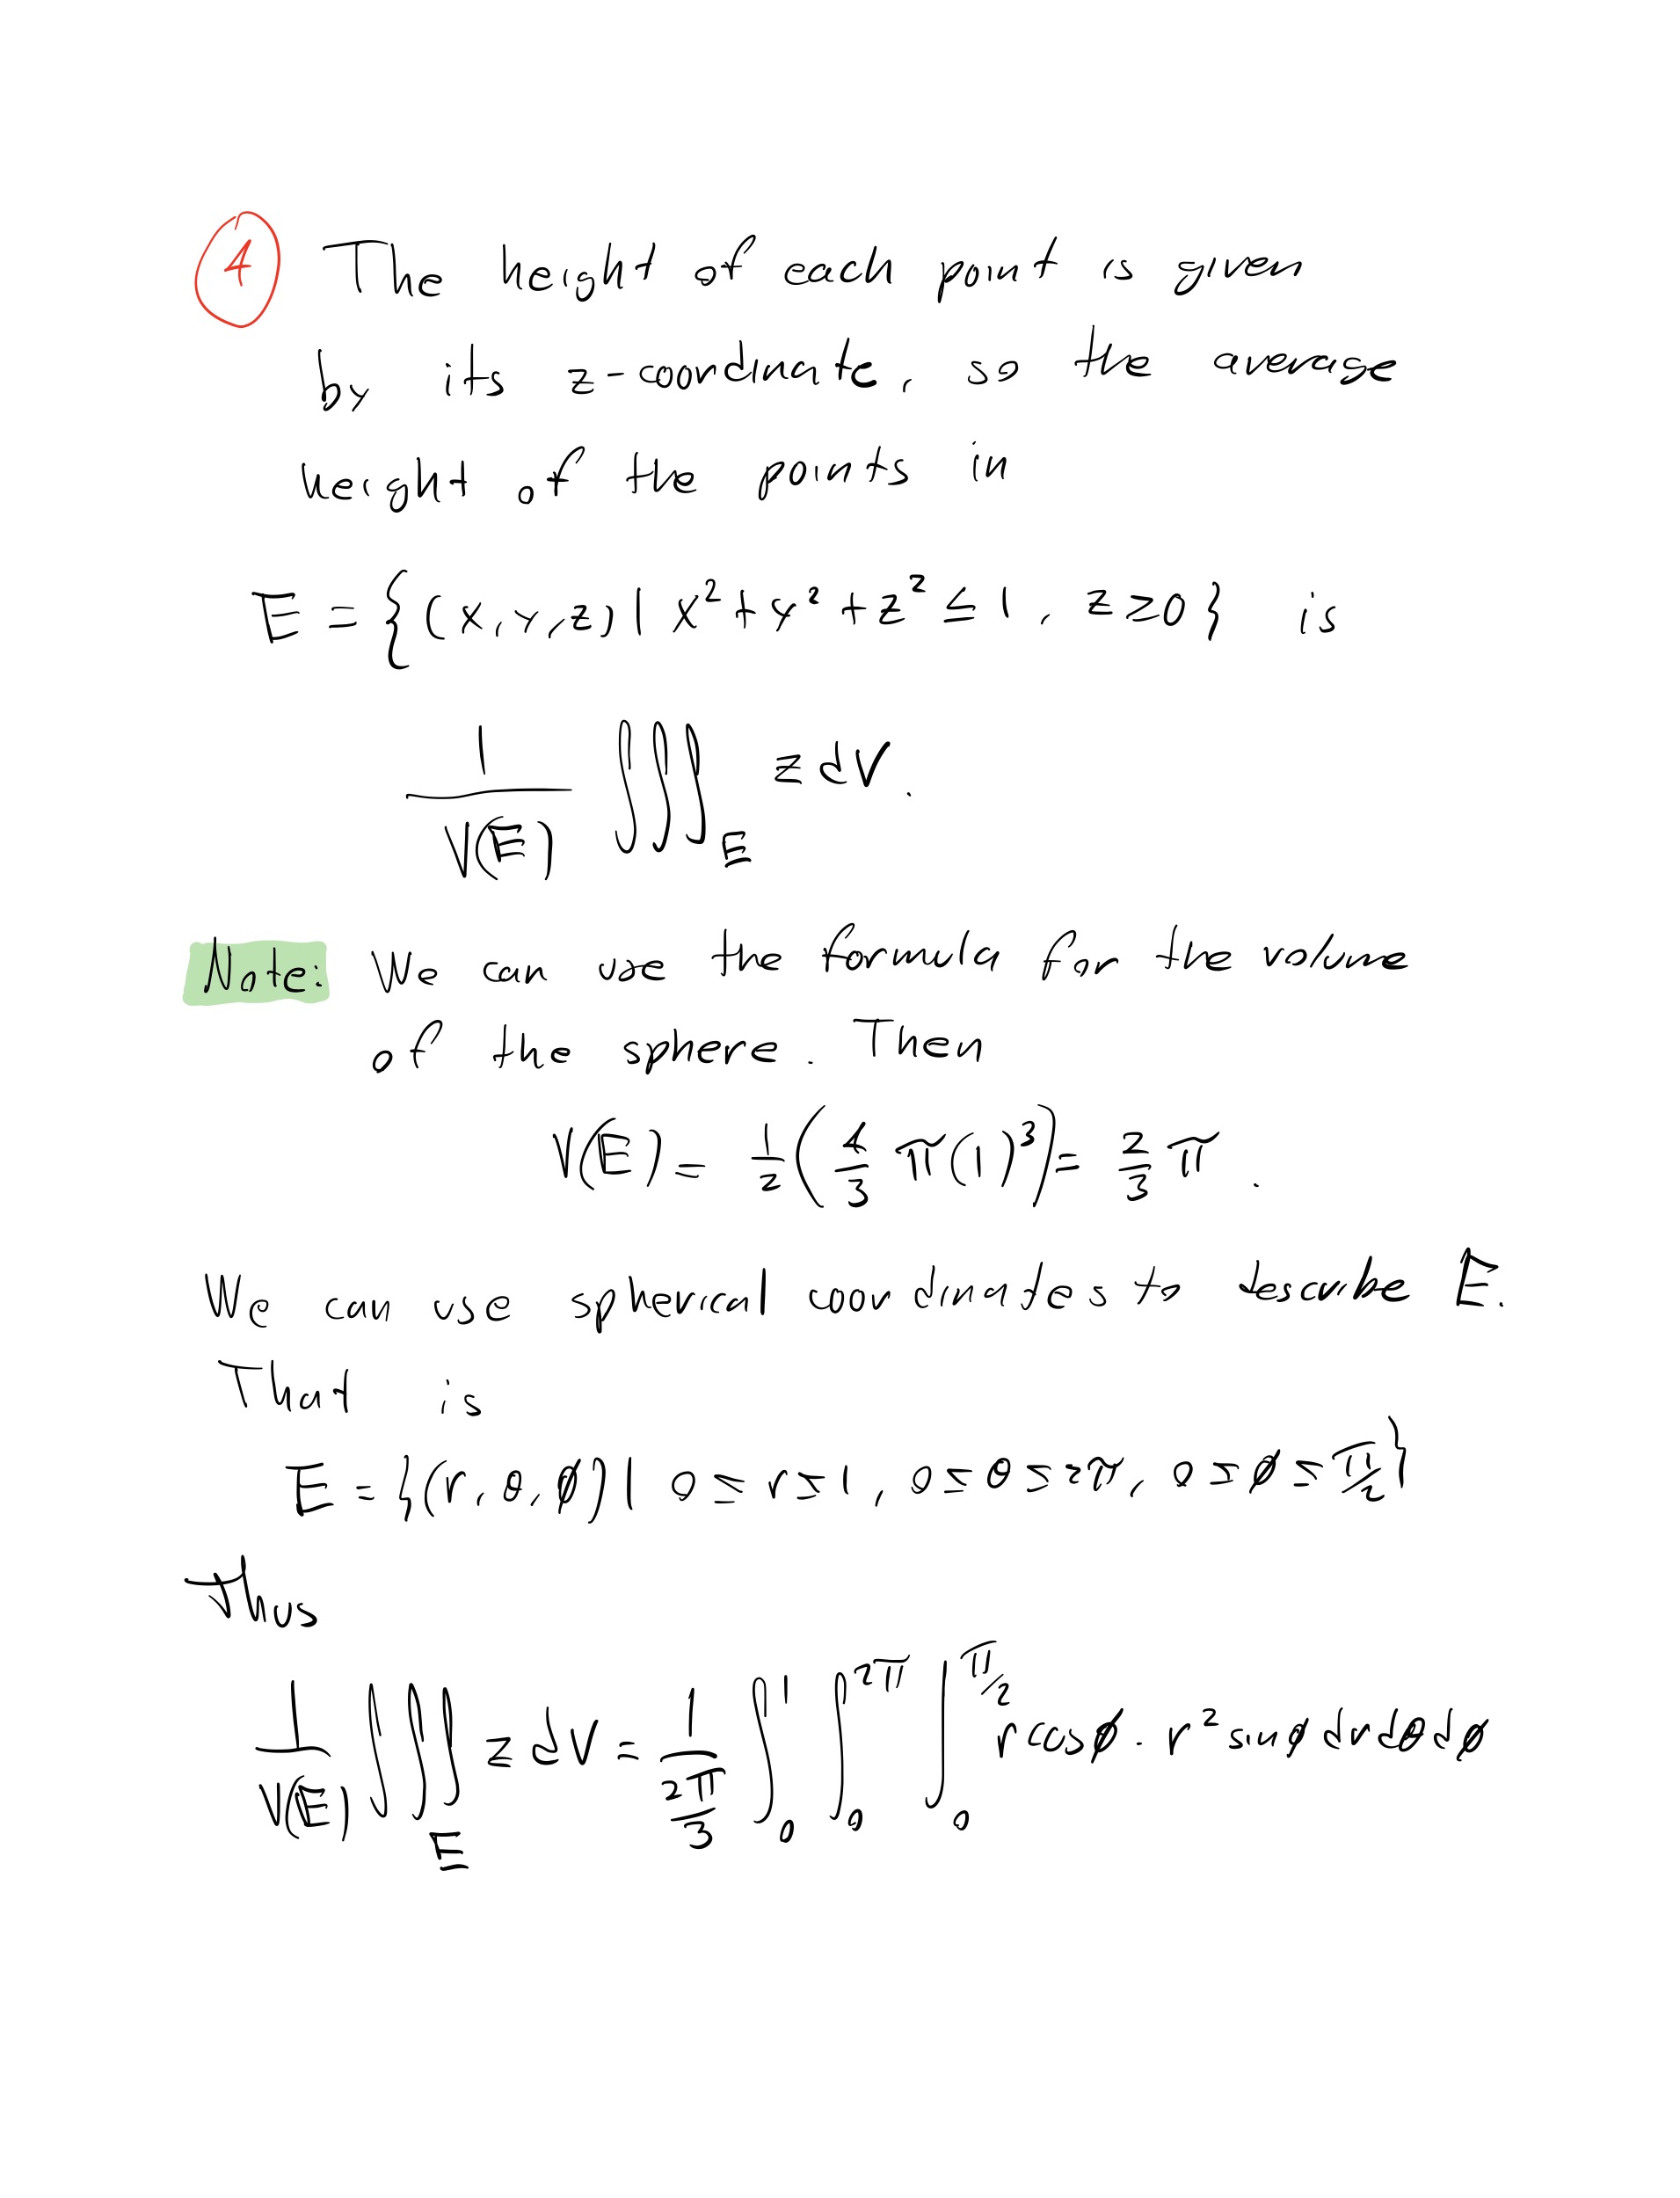 4 The height of each point is given
by its z-coordinate, so the average
height of the points in
E = {(x,y,z) | x² + y² + z² ≤ 1, z ≥ 0} is
1/V(E) ∭_E z dV.
Note: We can use the formula for the volume
of the sphere. Then
V(E) = 1/2 (4/3 π(1)³) = 2/3 π.
We can use spherical coordinates to describe E.
That is
E = {(r, θ, ϕ) | 0 ≤ r ≤ 1, 0 ≤ θ ≤ 2π, 0 ≤ ϕ ≤ π/2}
Thus
1/V(E) ∭_E z dV = 1/(2π/3) ∫₀¹ ∫₀^2π ∫₀^π/2 r cosϕ · r² sinϕ dr dθ dϕ